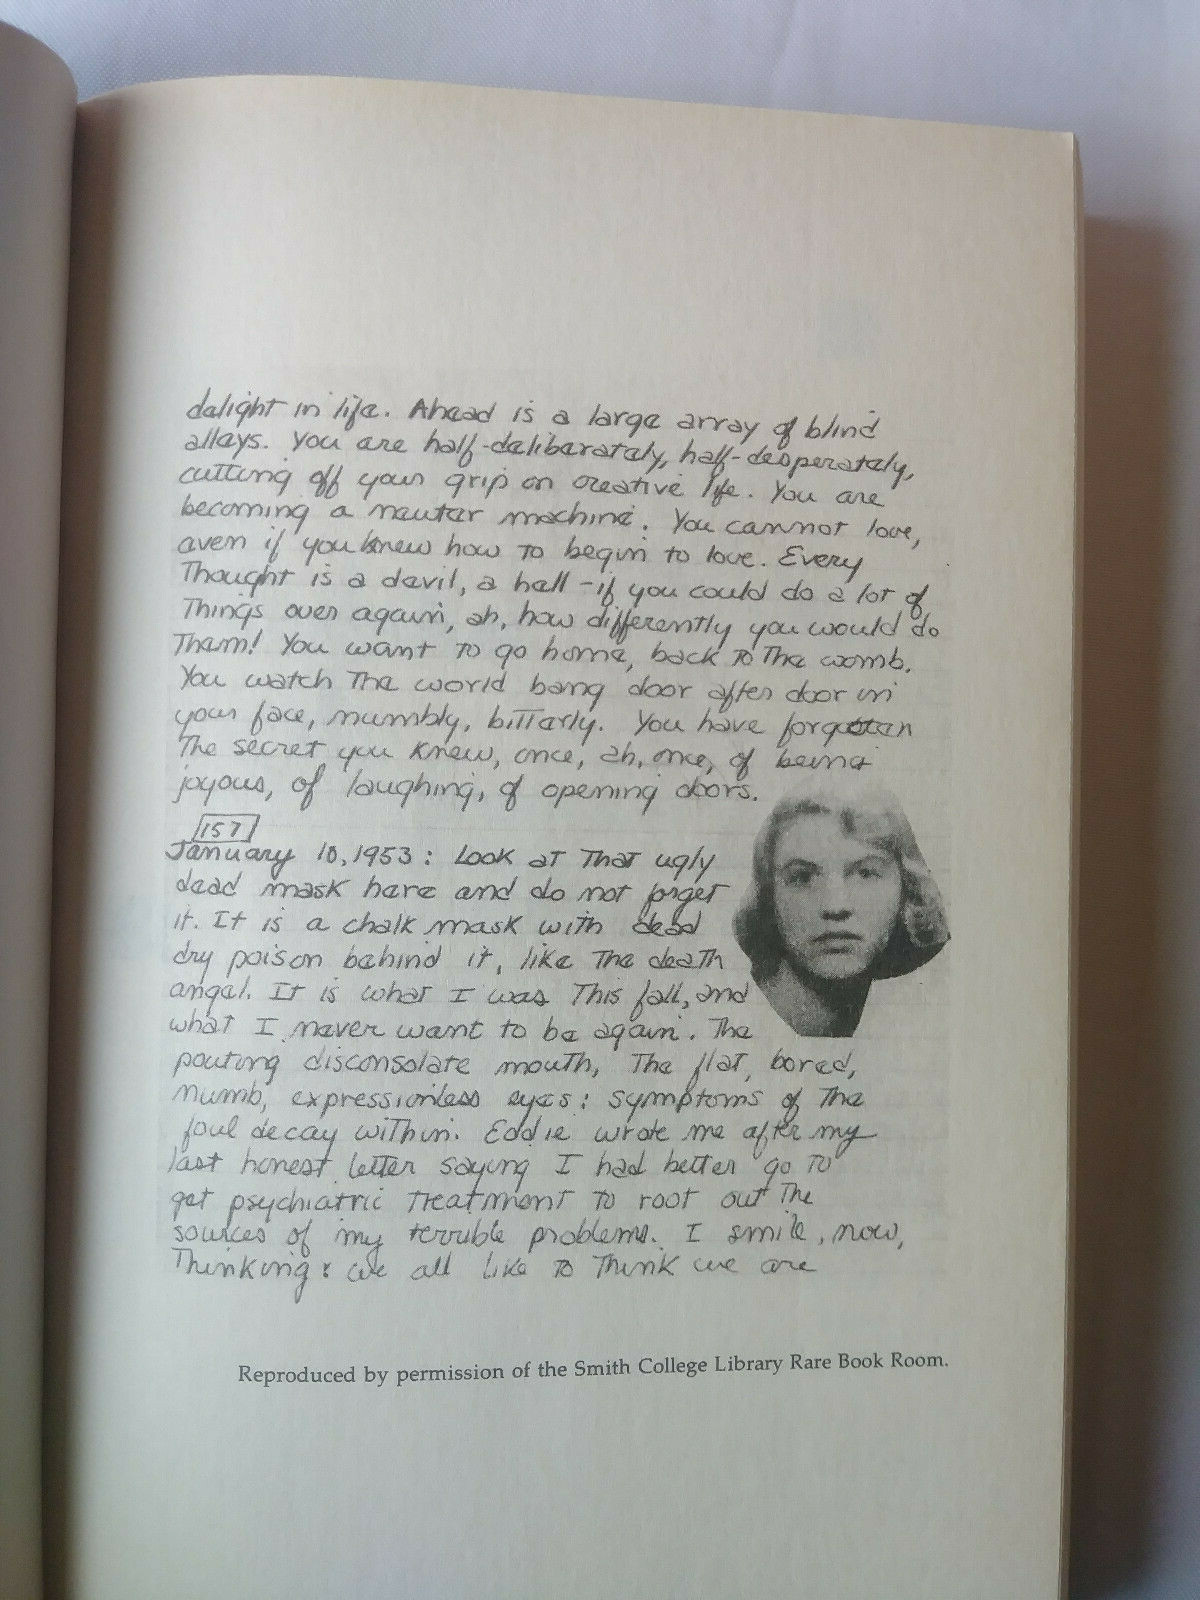 delight in life. Ahead is a large array of blind
alleys. You are half-deliberately, half-desperately,
cutting off your grip on creative life. You are
becoming a neuter machine. You cannot love,
even if you knew how to begin to love. Every
Thought is a devil, a hell - if you could do a lot of
Things over again, ah, how differently you would do
Them! You want to go home, back to the womb.
You watch the world bang door after door in
your face, numbly, bitterly. You have forgotten
The secret you knew, once, ah, once, of being
joyous, of laughing, of opening doors.
157
January 10, 1953: Look at that ugly
dead mask here and do not forget
it. It is a chalk mask with dead
dry poison behind it, like the death
angel. It is what I was this fall, and
what I never want to be again. The
pouting disconsolate mouth, The flat, bored,
numb, expressionless eyes: symptoms of the
foul decay within. Eddie wrote me after my
last honest letter saying I had better go to
get psychiatric treatment to root out the
sources of my terrible problems. I smile, now,
Thinking: we all like to think we are
Reproduced by permission of the Smith College Library Rare Book Room.